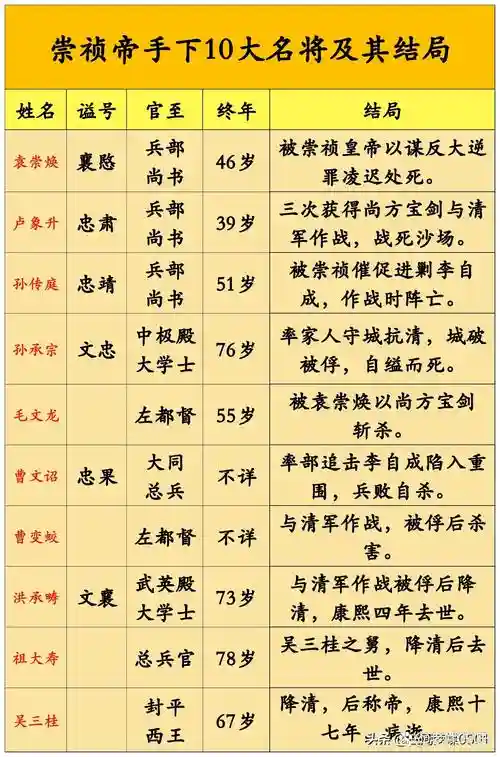 崇祯帝手下10大名将及其结局
姓名 谥号 官至 终年 结局
袁崇焕 襄愍 兵部尚书 46岁 被崇祯皇帝以谋反大逆罪凌迟处死。
卢象升 忠肃 兵部尚书 39岁 三次获得尚方宝剑与清军作战，战死沙场。
孙传庭 忠靖 兵部尚书 51岁 被崇祯催促进剿李自成，作战时阵亡。
孙承宗 文忠 中极殿大学士 76岁 率家人守城抗清，城破被俘，自缢而死。
毛文龙 左都督 55岁 被袁崇焕以尚方宝剑斩杀。
曹文诏 忠果 大同总兵 不详 率部追击李自成陷入重围，兵败自杀。
曹变蛟 左都督 不详 与清军作战，被俘后杀害。
洪承畴 文襄 武英殿大学士 73岁 与清军作战被俘后降清，康熙四年去世。
祖大寿 总兵官 78岁 吴三桂之舅，降清后去世。
吴三桂 封平西王 67岁 降清，后称帝，康熙十七年，病逝
头条